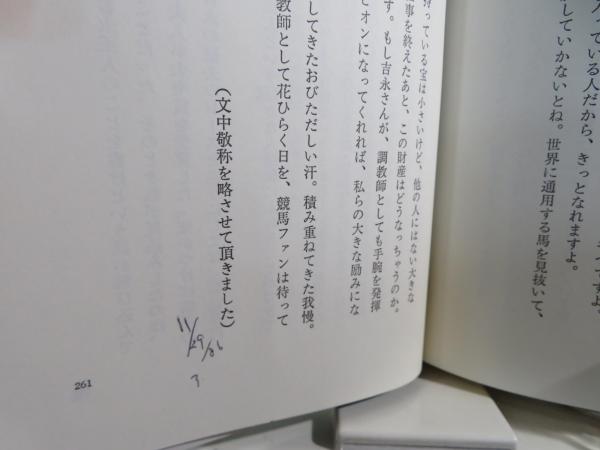 入っている人だから、きっとなれますよ。
していかないとね。世界に通用する馬を見抜いて、
持っている宝は小さいけど、他の人にはない大きな
事を終えたあと、この財産はどうなっちゃうのか。
す。もし吉永さんが、調教師としても手腕を発揮
オンになってくれれば、私らの大きな励みにな
してきたおびただしい汗。積み重ねてきた我慢。
教師として花ひらく日を、競馬ファンは待って
(文中敬称を略させて頂きました)
11/29/86
261